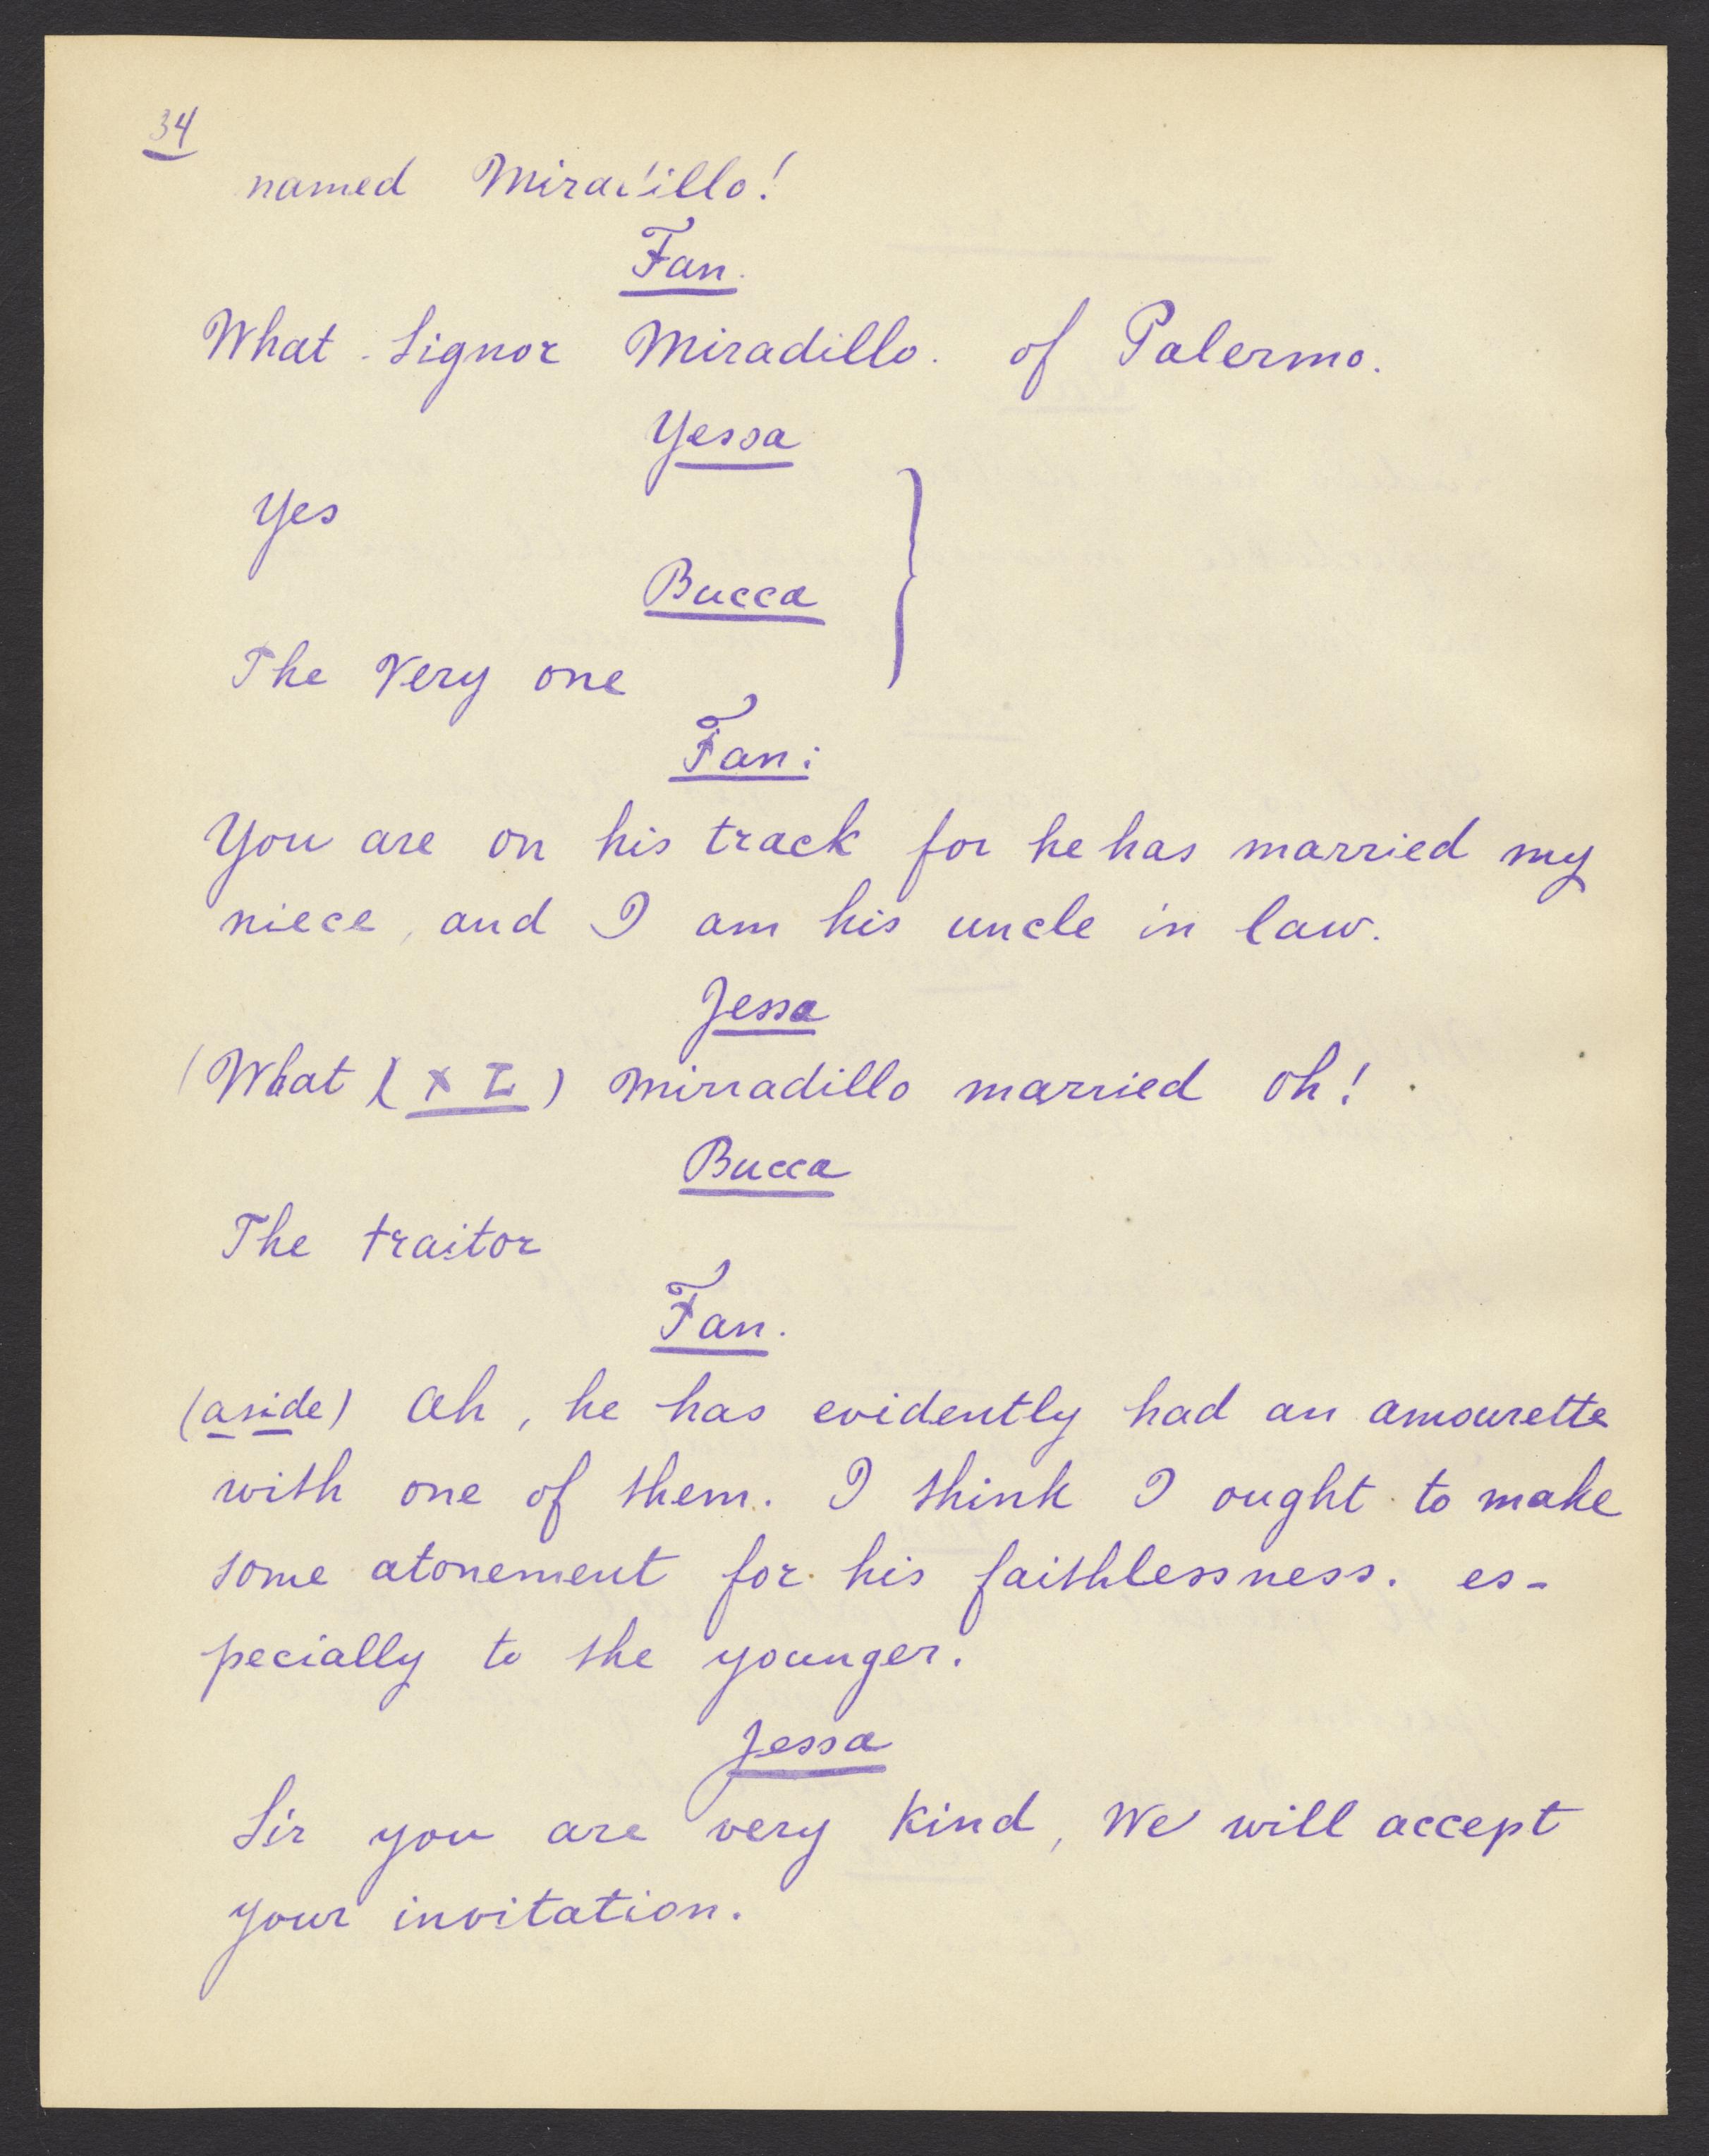 34
named Miradillo!
Fan.
What Signor Miradillo. of Palermo.
Yessa
Yes
Bucca
The Very one
Fan:
You are on his track for he has married my
niece, and I am his uncle in law.
Jessa
(What (X L) Mirradillo married Oh!
Bucca
The traitor
Fan.
(aside) Ah, he has evidently had an amourette
with one of them. I think I ought to make
some atonement for his faithlessness. es-
pecially to the younger.
Jessa
Sir you are very Kind, We will accept
your invitation.